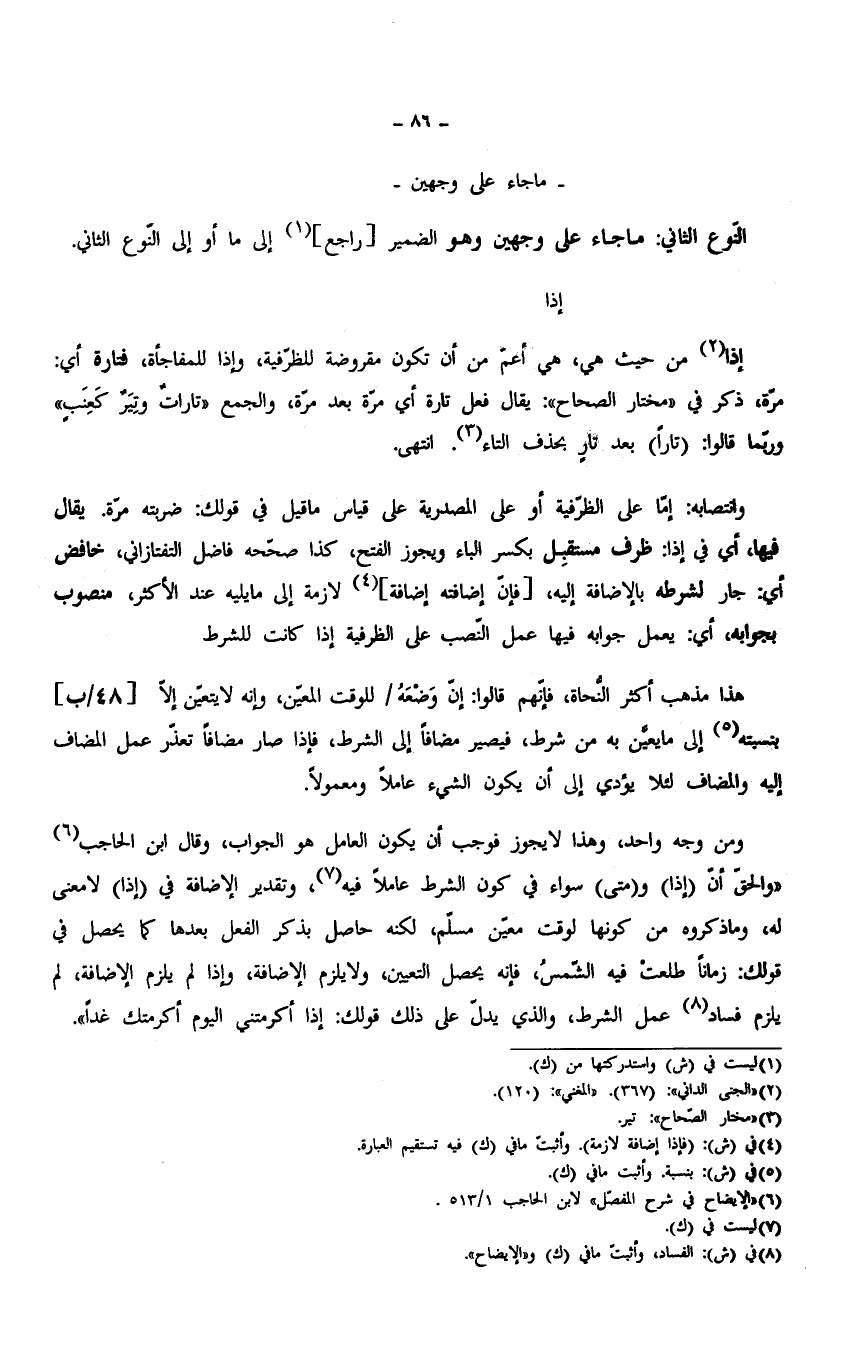 - ٨٦ -
- ماجاء على وجهين -
النّوع الثاني: ماجاء على وجهين وهو الضمير [راجع](١) إلى ما أو إلى النّوع الثاني.
إذا
إذا(٢) من حيث هي، هي أعمّ من أن تكون مقروضة للظرّفية، وإذا للمفاجأة، فتارة أي:
مرّة، ذكر في «مختار الصحاح»: يقال فعل تارة أي مرّة بعد مرّة، والجمع «تاراتٌ وتِيَرٌ كَعِنَبٍ»
وربّما قالوا: (تاراً) بعد تارٍ بحذف التاء(٣). انتهى.
وانتصابه: إمّا على الظرّفية أو على المصدرية على قياس ماقيل في قولك: ضربته مرّة. يقال
فيها، أي في إذا: ظرف مستقبِل بكسر الباء ويجوز الفتح، كذا صحّحه فاضل التفتازاني، خافض
أي: جار لشرطه بالإضافة إليه، [فإنّ إضافته إضافة](٤) لازمة إلى مايليه عند الأكثر، منصوب
بجوابه، أي: يعمل جوابه فيها عمل النّصب على الظرفية إذا كانت للشرط
هذا مذهب أكثر النُّحاة، فإنّهم قالوا: إنّ وَضْعَهُ/ للوقت المعيّن، وإنه لايتعيّن إلاّ [٤٨/ب]
بنسبته(٥) إلى مايعيَّن به من شرط، فيصير مضافاً إلى الشرط، فإذا صار مضافاً تعذّر عمل المضاف
إليه والمضاف لئلا يؤدي إلى أن يكون الشيء عاملاً ومعمولاً.
ومن وجه واحد، وهذا لايجوز فوجب أن يكون العامل هو الجواب، وقال ابن الحاجب(٦)
«والحقّ أنّ (إذا) و(متى) سواء في كون الشرط عاملاً فيه(٧)، وتقدير الإضافة في (إذا) لامعنى
له، وماذكروه من كونها لوقت معيّن مسلّم، لكنه حاصل بذكر الفعل بعدها كما يحصل في
قولك: زماناً طلعتْ فيه الشّمسُ، فإنه يحصل التعيين، ولايلزم الإضافة، وإذا لم يلزم الإضافة، لم
يلزم فساد(٨) عمل الشرط، والذي يدلّ على ذلك قولك: إذا أكرمتني اليوم أكرمتك غداً».
(١)ليست في (ش) واستدركتها من (ك).
(٢)«الجنى الداني»: (٣٦٧). «المغني»: (١٢٠).
(٣)«مختار الصّحاح»: تير.
(٤)في (ش): (فإذا إضافة لازمة). وأثبتّ مافي (ك) فيه تستقيم العبارة.
(٥)في (ش): بنسبة. وأثبت مافي (ك).
(٦)«الإيضاح في شرح المفصّل» لابن الحاجب ٥١٣/١ .
(٧)ليست في (ك).
(٨)في (ش): الفساد، وأثبتّ مافي (ك) و«الإيضاح».